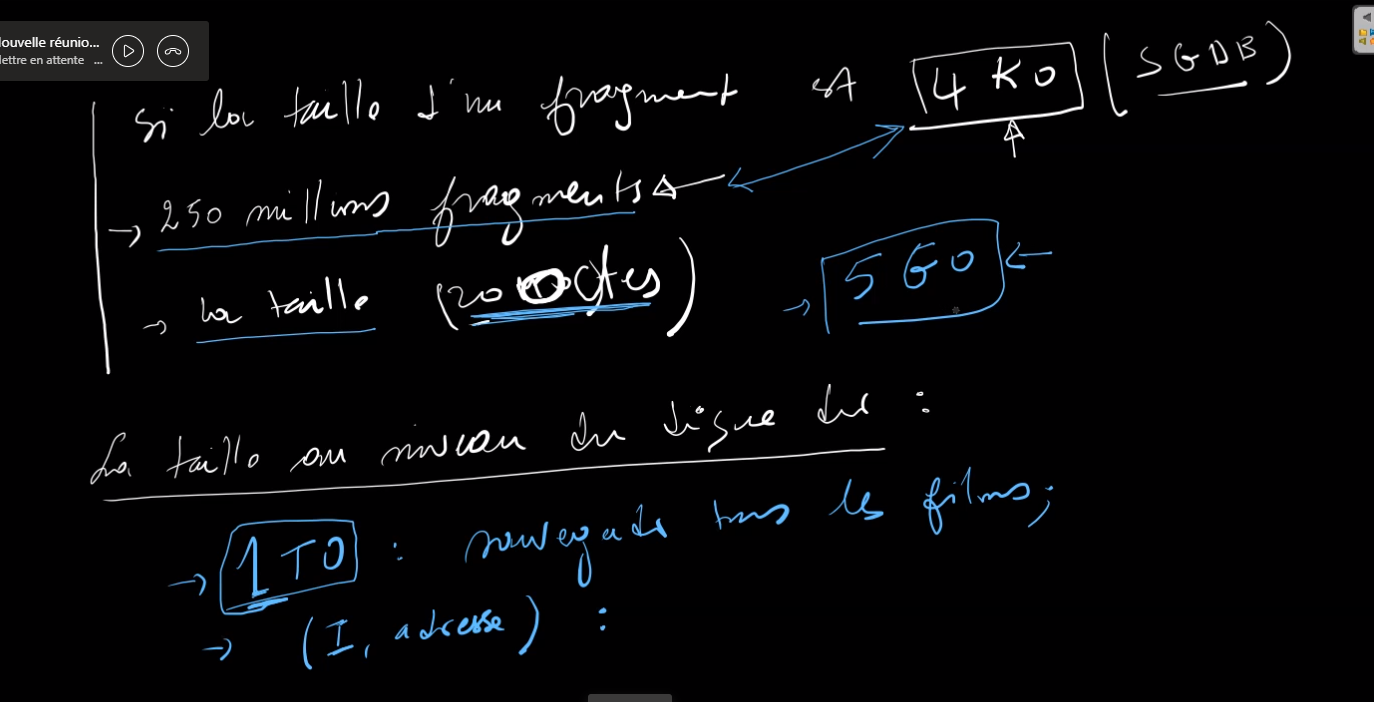 Nouvelle réunio...
lettre en attente ...
si la taille d'un fragment est 4 KO (SGDB)
→ 250 millions fragments ←
→ la taille (20 octes) → 5 GO ←
La taille au niveau du disque dur :
→ 1 TO : sauvegade tous les films;
→ (I, adresse) :